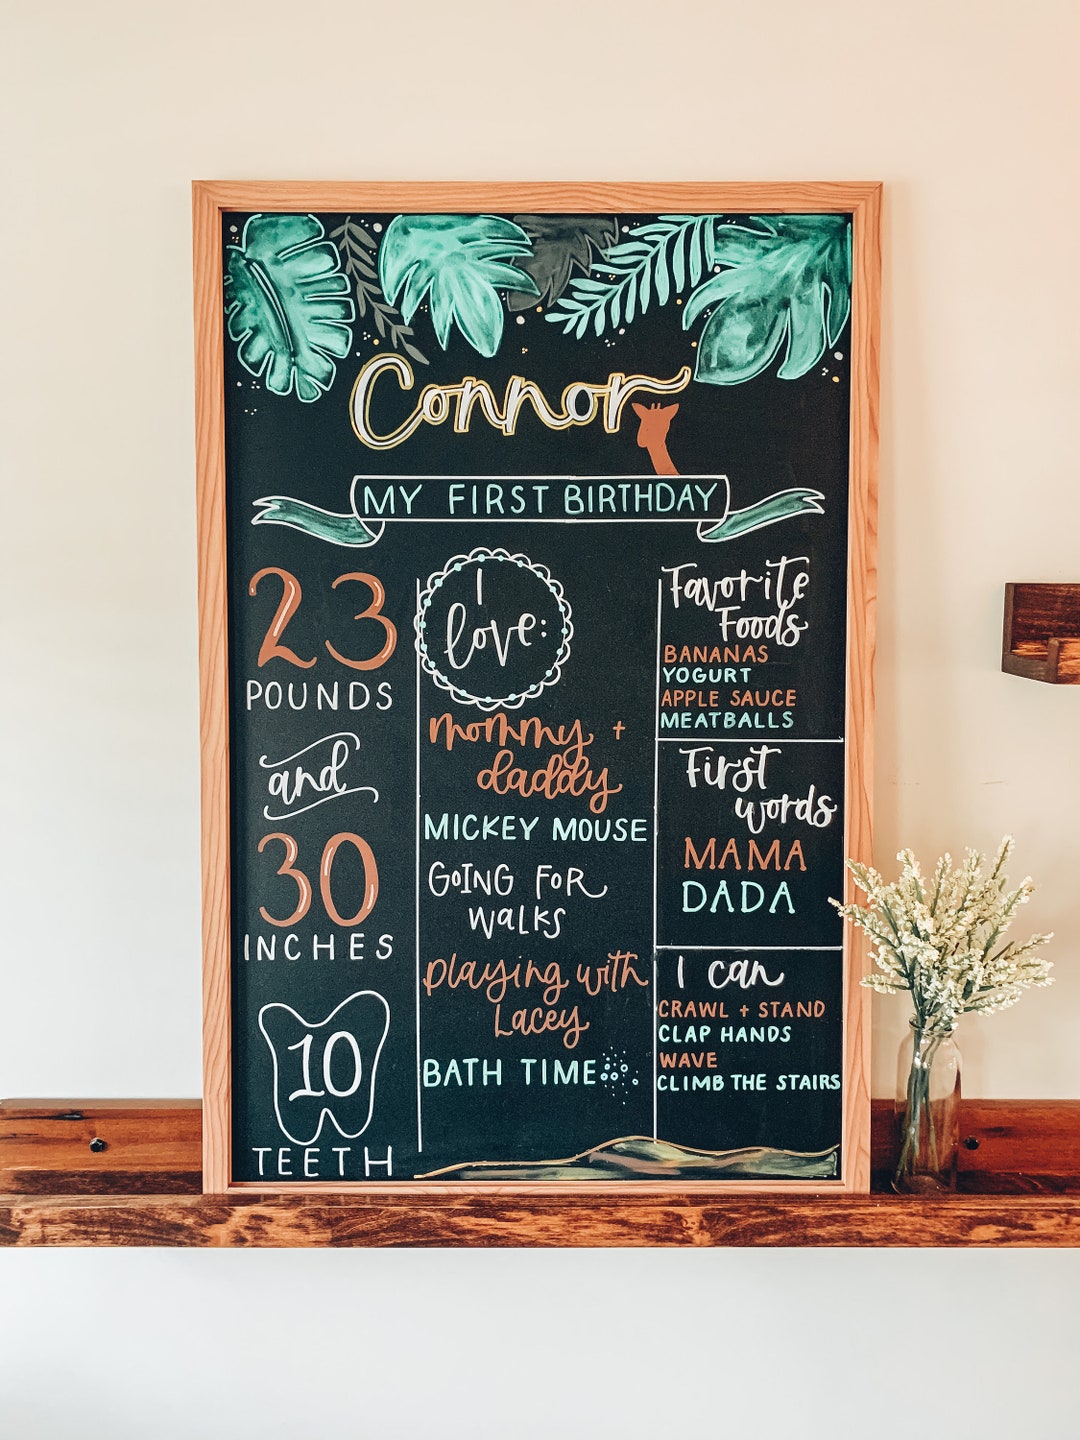 Connor
MY FIRST BIRTHDAY
23
POUNDS
and
30
INCHES
10
TEETH
I
love:
mommy +
daddy
MICKEY MOUSE
GOING FOR
WALKS
playing with
Lacey
BATH TIME
Favorite
Foods
BANANAS
YOGURT
APPLE SAUCE
MEATBALLS
First
words
MAMA
DADA
I can
CRAWL + STAND
CLAP HANDS
WAVE
CLIMB THE STAIRS